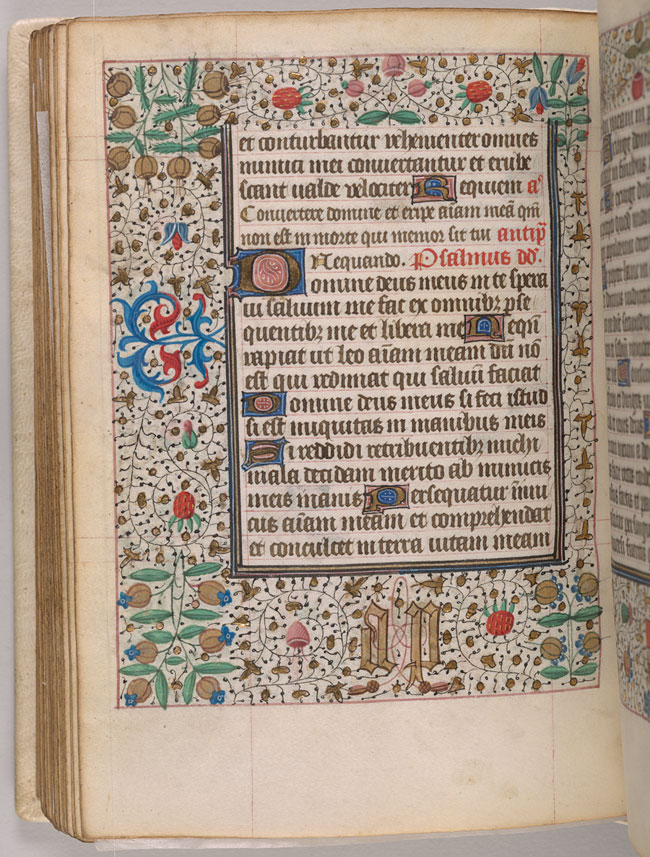 et conturbantur vehementer omnes
inimici mei convertantur et erube
scant valde velociter Requiem a͂
Convertere domine et eripe aīam meā qm̄
non est in morte qui memor sit tui antip̄
Nequando. Psalmus dd.
Domine deus meus in te spera
vi saluum me fac ex omnibꝫ pse
quentibꝫ me et libera me Neqn̄
rapiat ut leo aīam meam dū nō
est qui redimat qui saluū faciat
Domine deus meus si feci istud
si est iniquitas in manibus meis
Si reddidi retribuentibꝫ michi
mala decidam merito ab inimicis
meis inanis Persequatur inimi
cus aīam meam et comprehendat
et conculcet in terra vitam meam